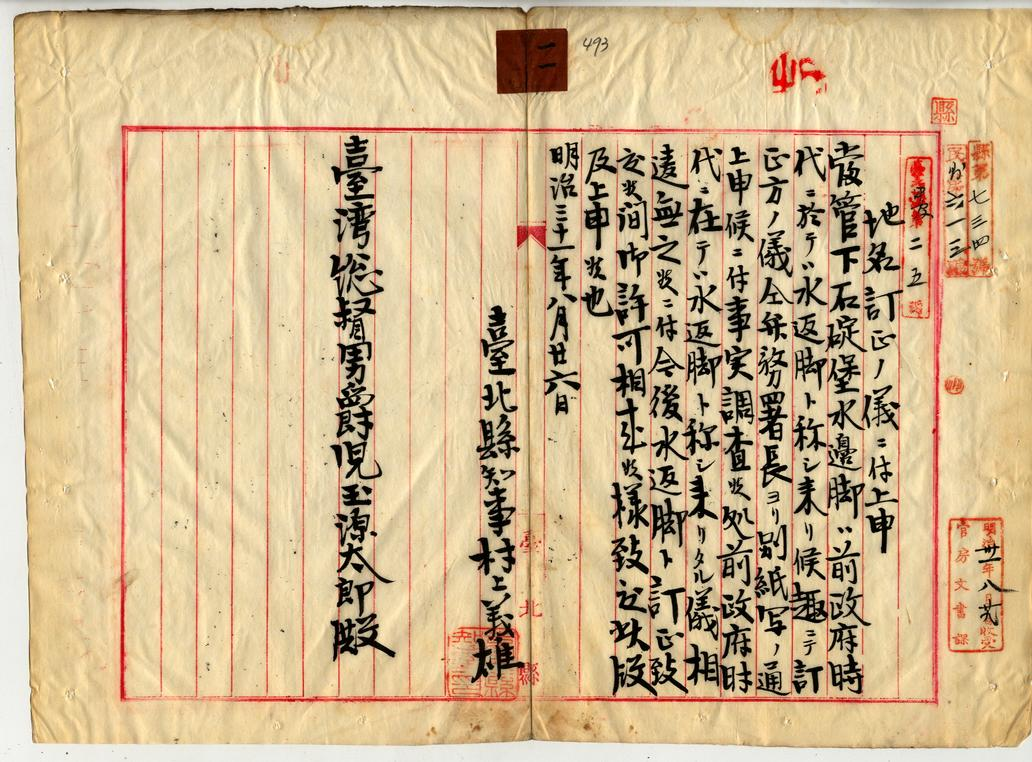 縣第七三四號
民第六一三號
二五
地名訂正ノ儀ニ付上申
當管下石碇堡水邊脚ハ前政府時
代ニ於テハ水返脚ト称シ来リ候趣ニテ訂
正方ノ儀仝弁務署長ヨリ別紙写ノ通
上申候ニ付事実調査候処前政府時
代ニ在テハ水返脚ト称シ来リタル儀相
違無之候ニ付今後水返脚ト訂正致
度候間御許可相成候様致度此段
及上申候也
明治三十一年八月廿六日
臺北縣知事村上義雄
臺湾総督男爵児玉源太郎殿
臺北縣
二
493
縣
明治卅一年八月
官房文書課